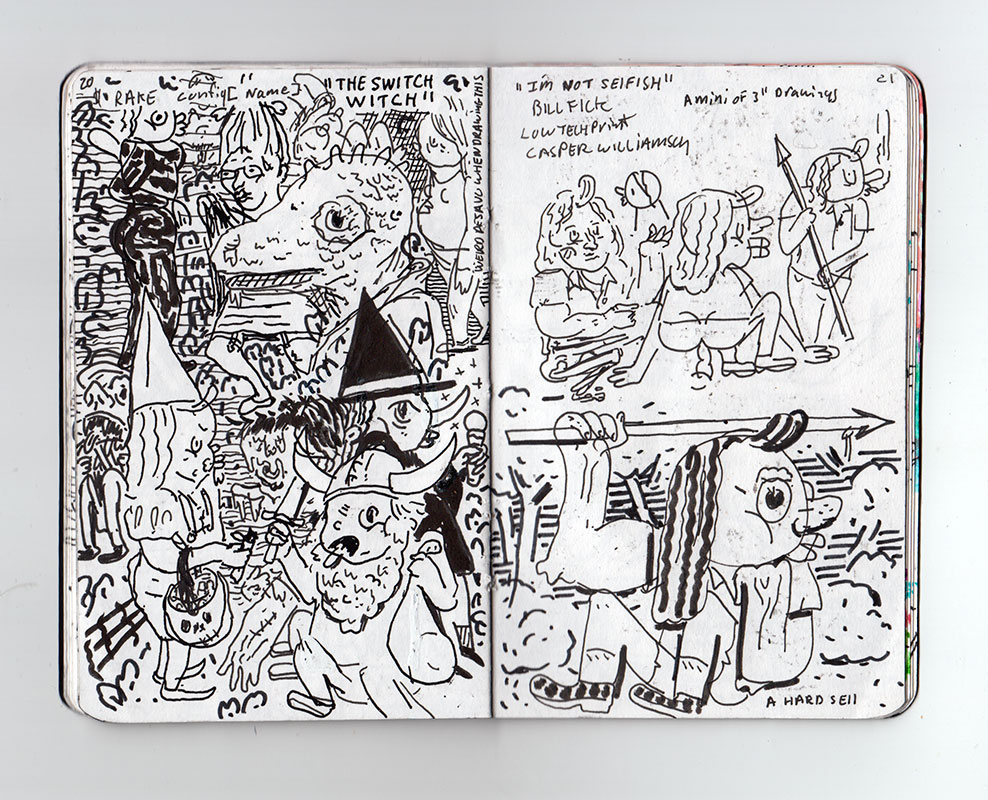 20
"RAKE Config[Name]"
"THE SWITCH
WITCH"
WEIRD DEJAVU WHEN DRAWING THIS
21
"IM NOT SElFISH"
BILL FICK
LOW TECH PRINT
CASPER WILLIAMSON
A mini of 3" Drawings
A HARD SEll